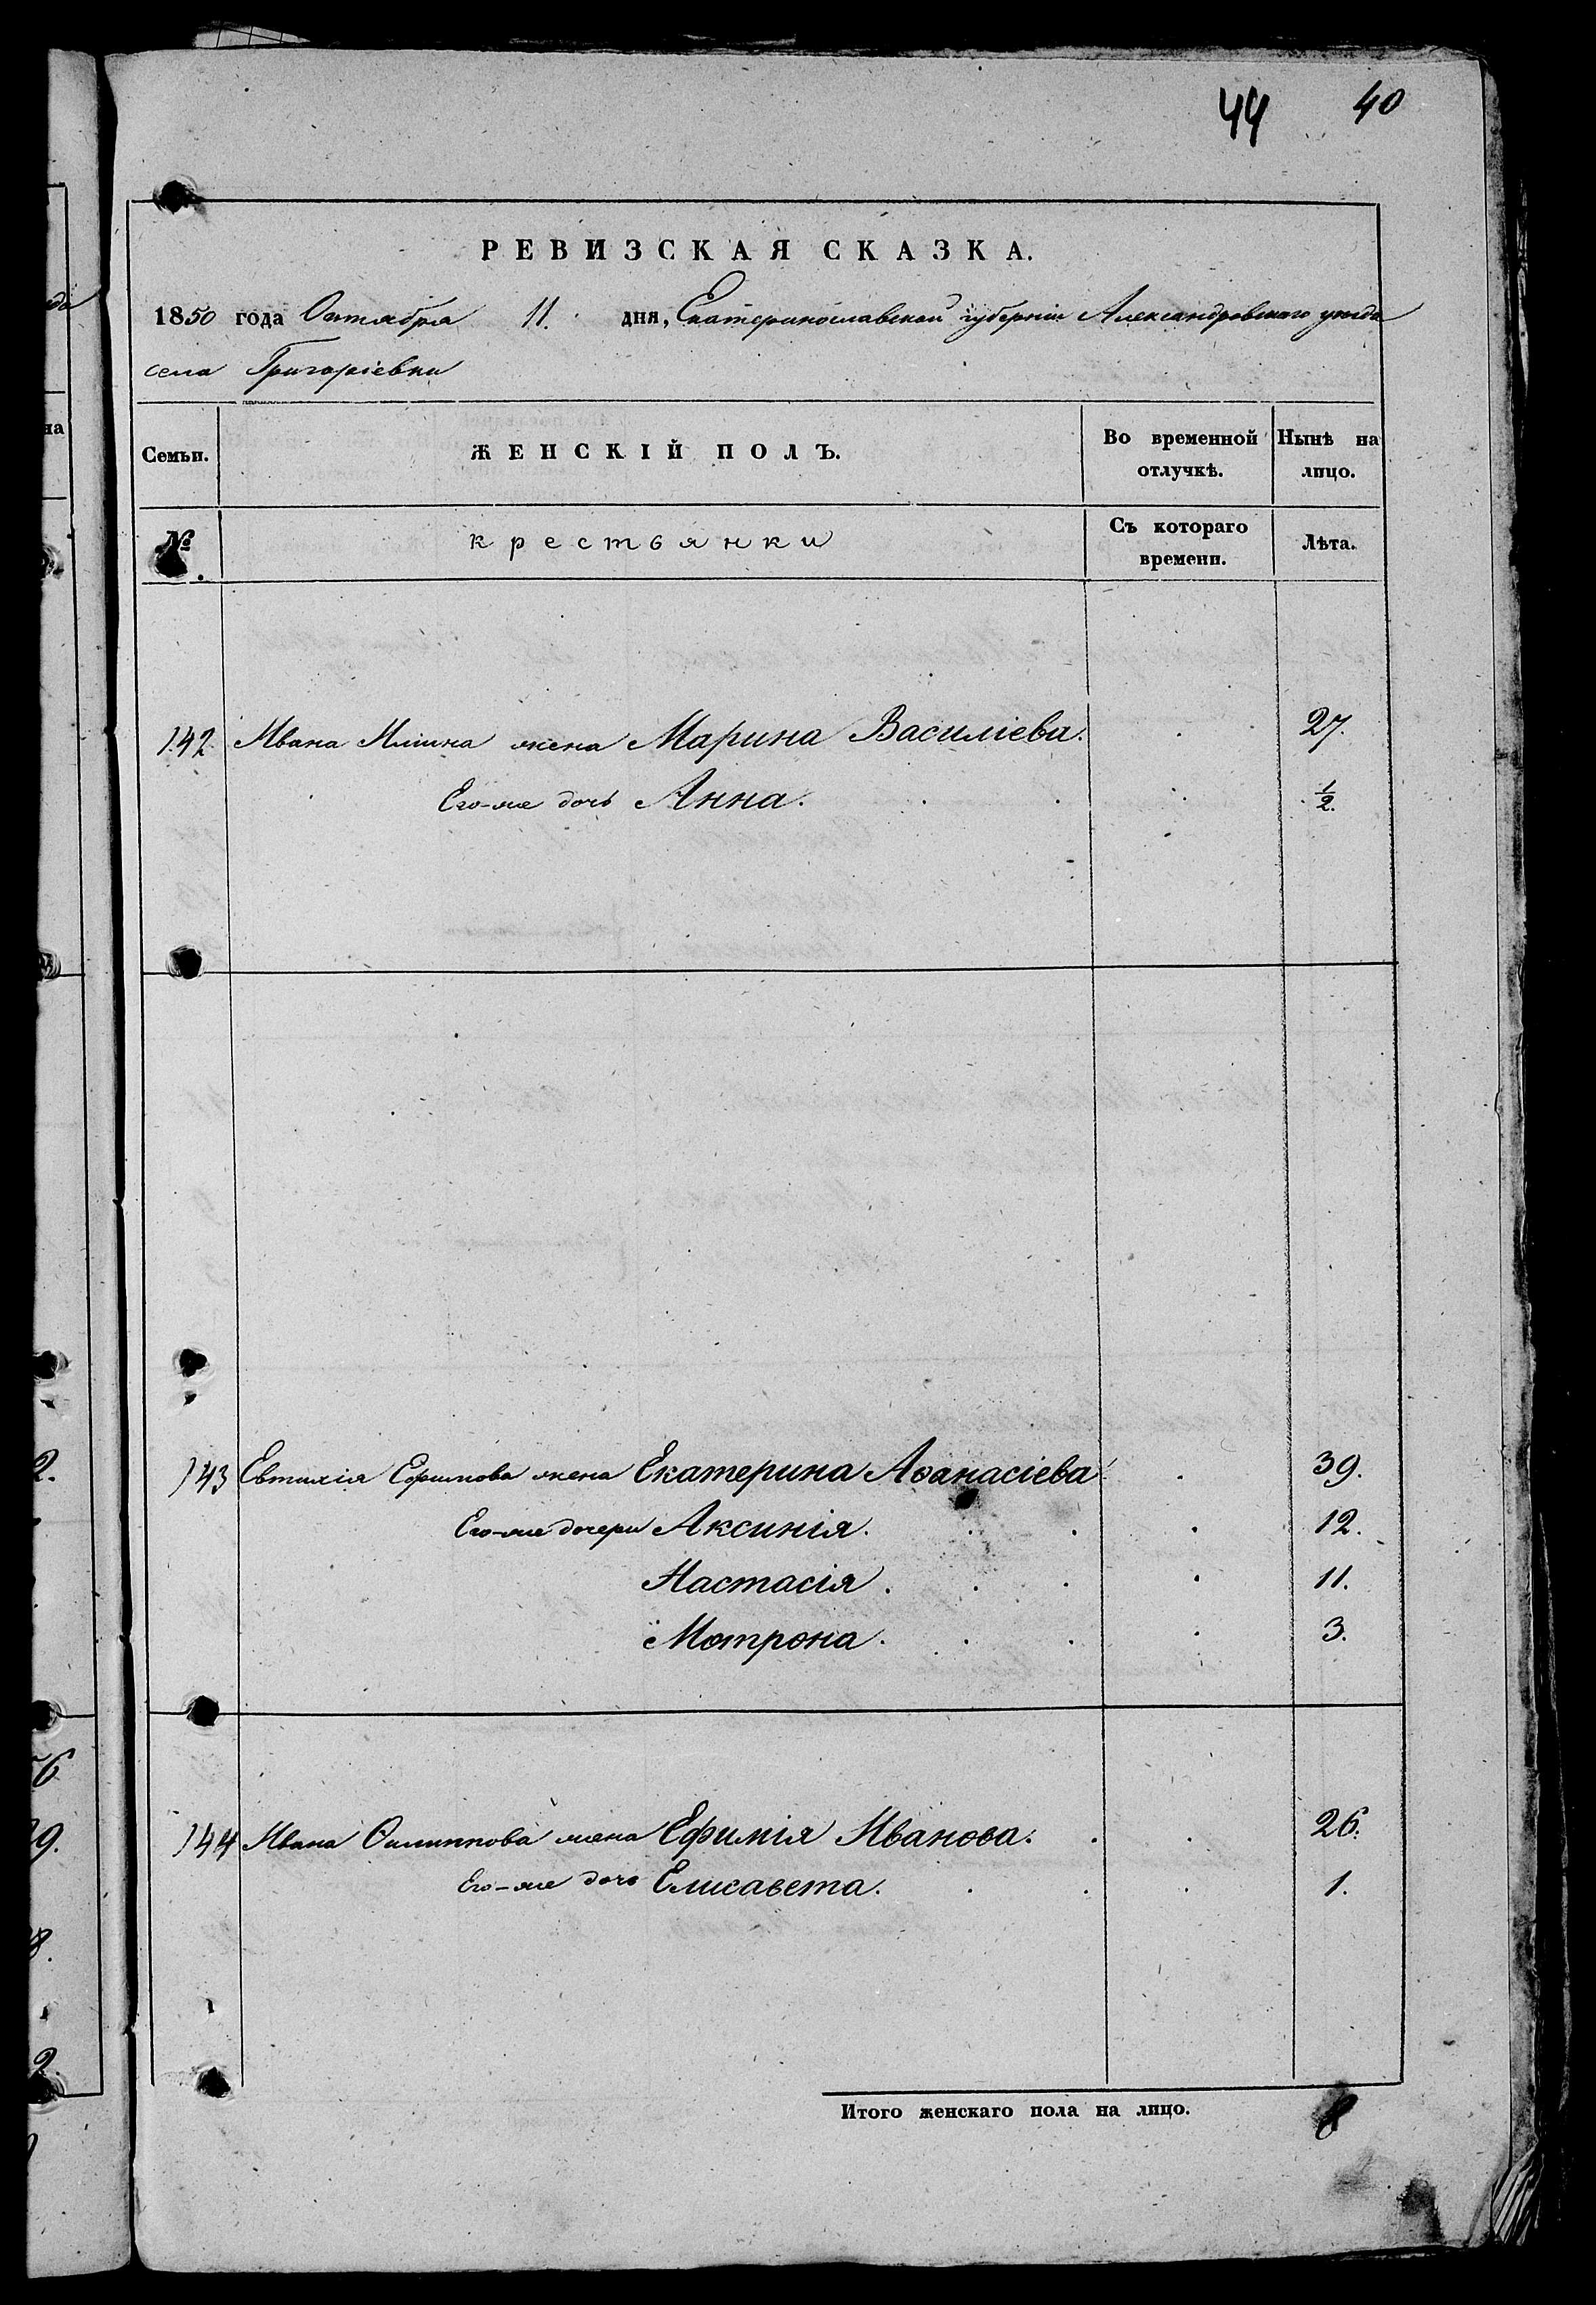 44 40
РЕВИЗСКАЯ СКАЗКА.
1850 года Октября 11. дня, Екатеринославской губерніи Александровскаго уезда
села Григоріевки
Семьи. ЖЕНСКІЙ ПОЛЪ. Во временной отлучкѣ. Нынѣ на лицо.
№ крестьянки Съ котораго времени. Лѣта.
142 Ивана Ильина жена Марина Василіева. 27.
Его-же дочь Анна. 1/2.
143 Евтихія Ефимова жена Екатерина Аѳанасіева 39.
Его-же дочери Аксинія. 12.
Настасія. 11.
Мотрона. 3.
144 Ивана Филиппова жена Ефимія Иванова. 26.
Его-же дочь Елисавета. 1.
Итого женскаго пола на лицо. 8